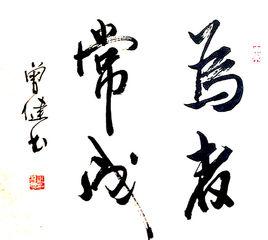 为者
常成
曾健书